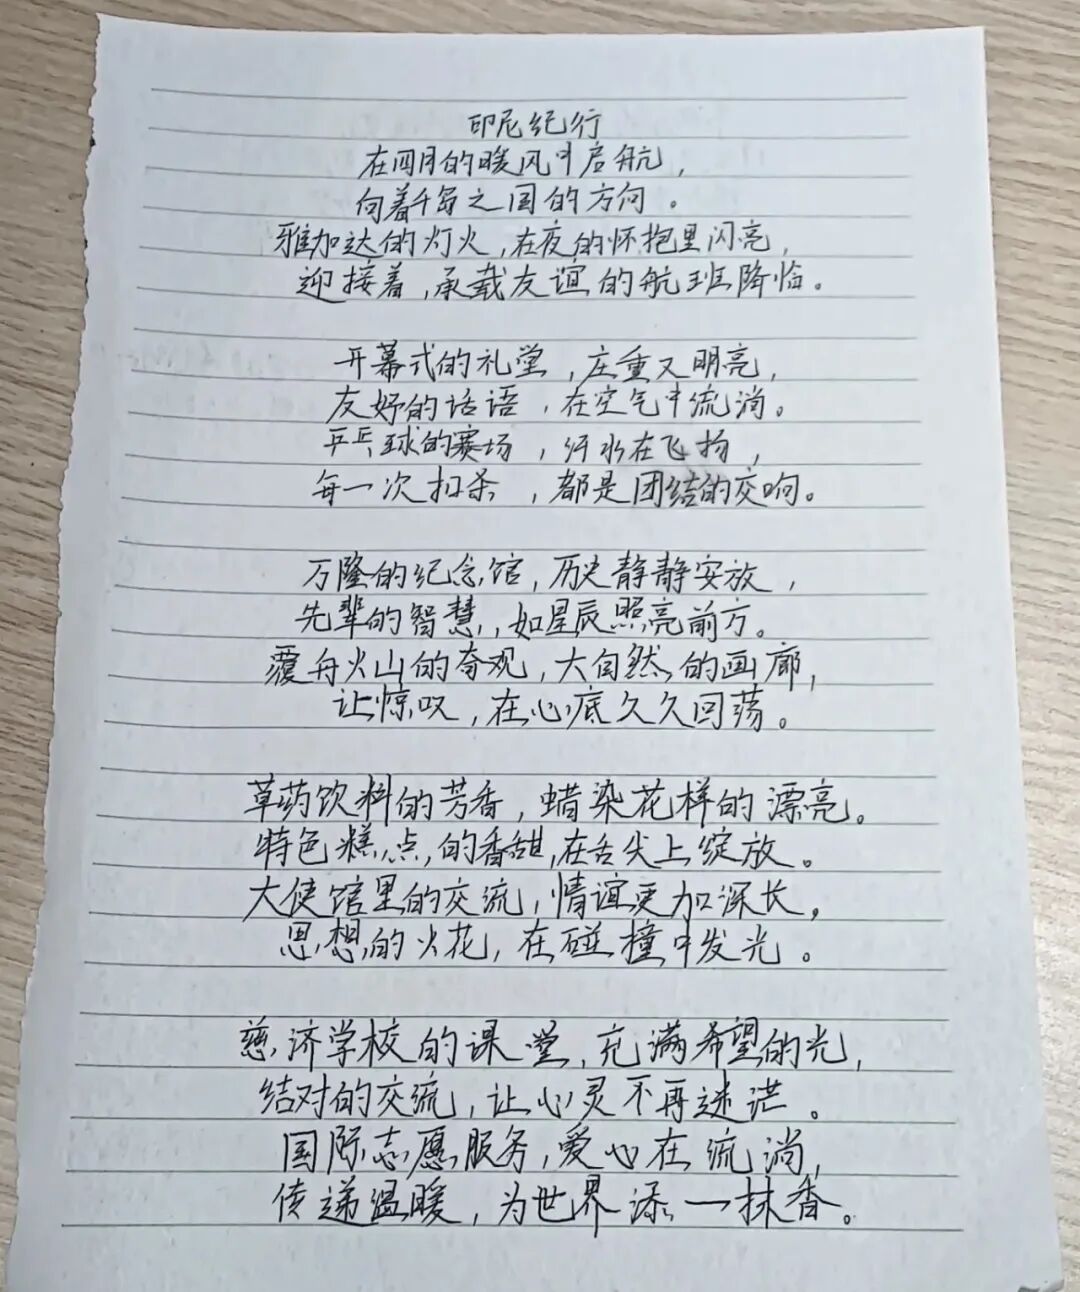 印尼纪行
在四月的暖风中启航，
向着千岛之国的方向。
雅加达的灯火，在夜的怀抱里闪亮，
迎接着，承载友谊的航班降临。
开幕式的礼堂，庄重又明亮，
友好的话语，在空气中流淌。
乒乓球的赛场，汗水在飞扬，
每一次扣杀，都是团结的交响。
万隆的纪念馆，历史静静安放，
先辈的智慧，如星辰照亮前方。
覆舟火山的奇观，大自然的画廊，
让惊叹，在心底久久回荡。
草药饮料的芳香，蜡染花样的漂亮。
特色糕点，的香甜，在舌尖上绽放。
大使馆里的交流，情谊更加深长，
思想的火花，在碰撞中发光。
慈济学校的课堂，充满希望的光，
结对的交流，让心灵不再迷茫。
国际志愿服务，爱心在流淌，
传递温暖，为世界添一抹香。